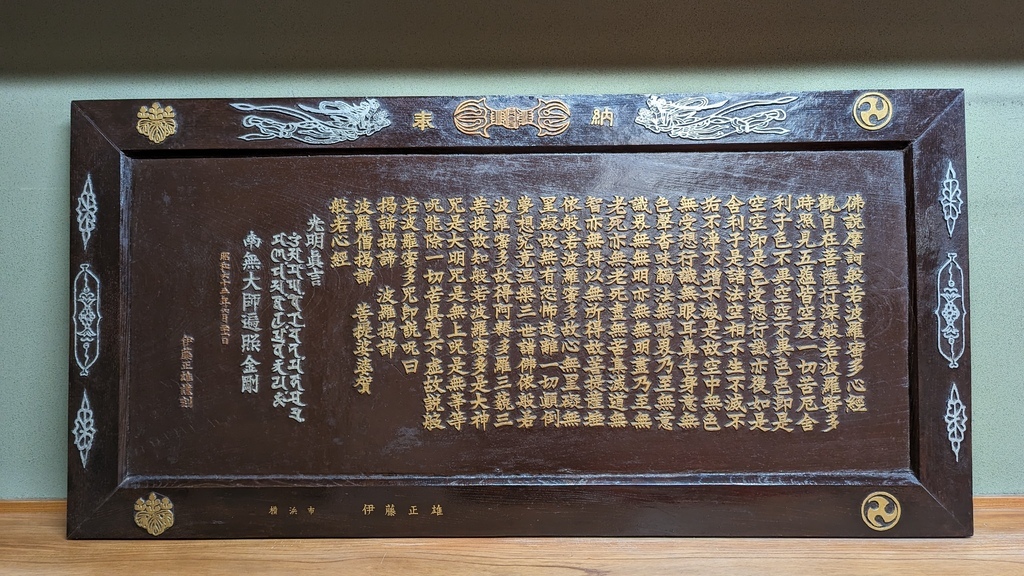 奉納
佛說摩訶般若波羅蜜多心經
觀自在菩薩行深般若波羅蜜多
時照見五蘊皆空度一切苦厄舍
利子色不異空空不異色色即是
空空即是色受想行識亦復如是
舍利子是諸法空相不生不滅不
垢不淨不增不減是故空中無色
無受想行識無眼耳鼻舌身意無
色聲香味觸法無眼界乃至無意
識界無無明亦無無明盡乃至無
老死亦無老死盡無苦集滅道無
智亦無得以無所得故菩提薩埵
依般若波羅蜜多故心無罣礙無
罣礙故無有恐怖遠離一切顛倒
夢想究竟涅槃三世諸佛依般若
波羅蜜多故得阿耨多羅三藐三
菩提故知般若波羅蜜多是大神
咒是大明咒是無上咒是無等等
咒能除一切苦眞實不虛故說般
若波羅蜜多咒即說咒曰
揭諦揭諦 波羅揭諦
波羅僧揭諦 菩提娑婆賀
般若心經
光明眞言
南無大師遍照金剛
昭和
伊藤正雄
横浜市 伊藤正雄